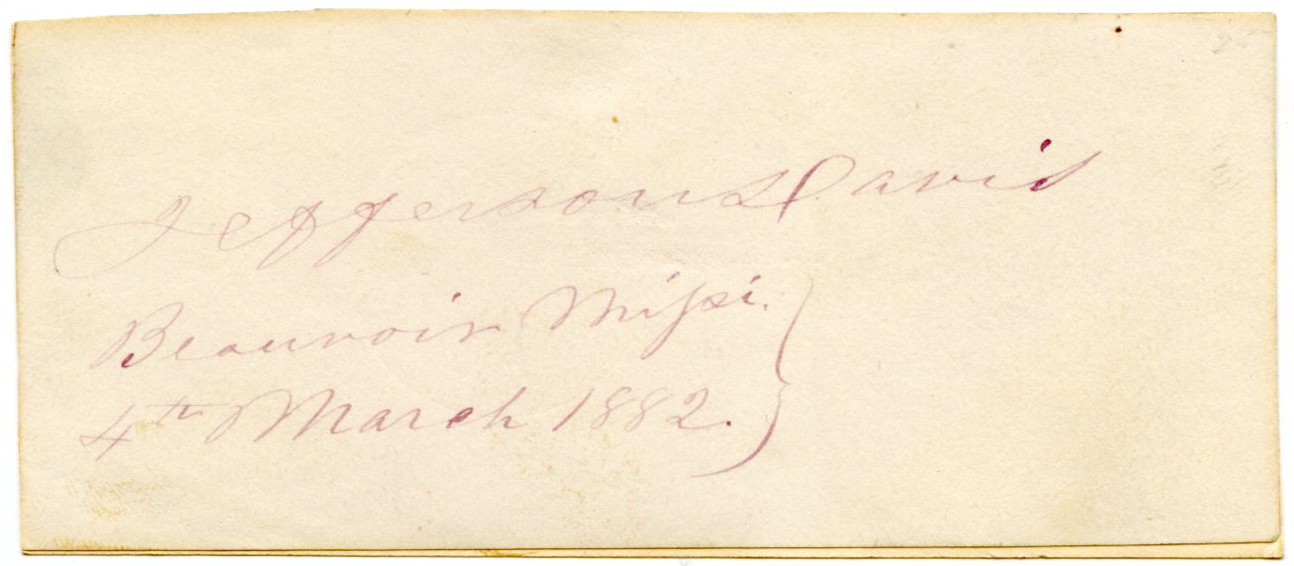 Jefferson Davis
Beauvoir Missi.
4th March 1882.